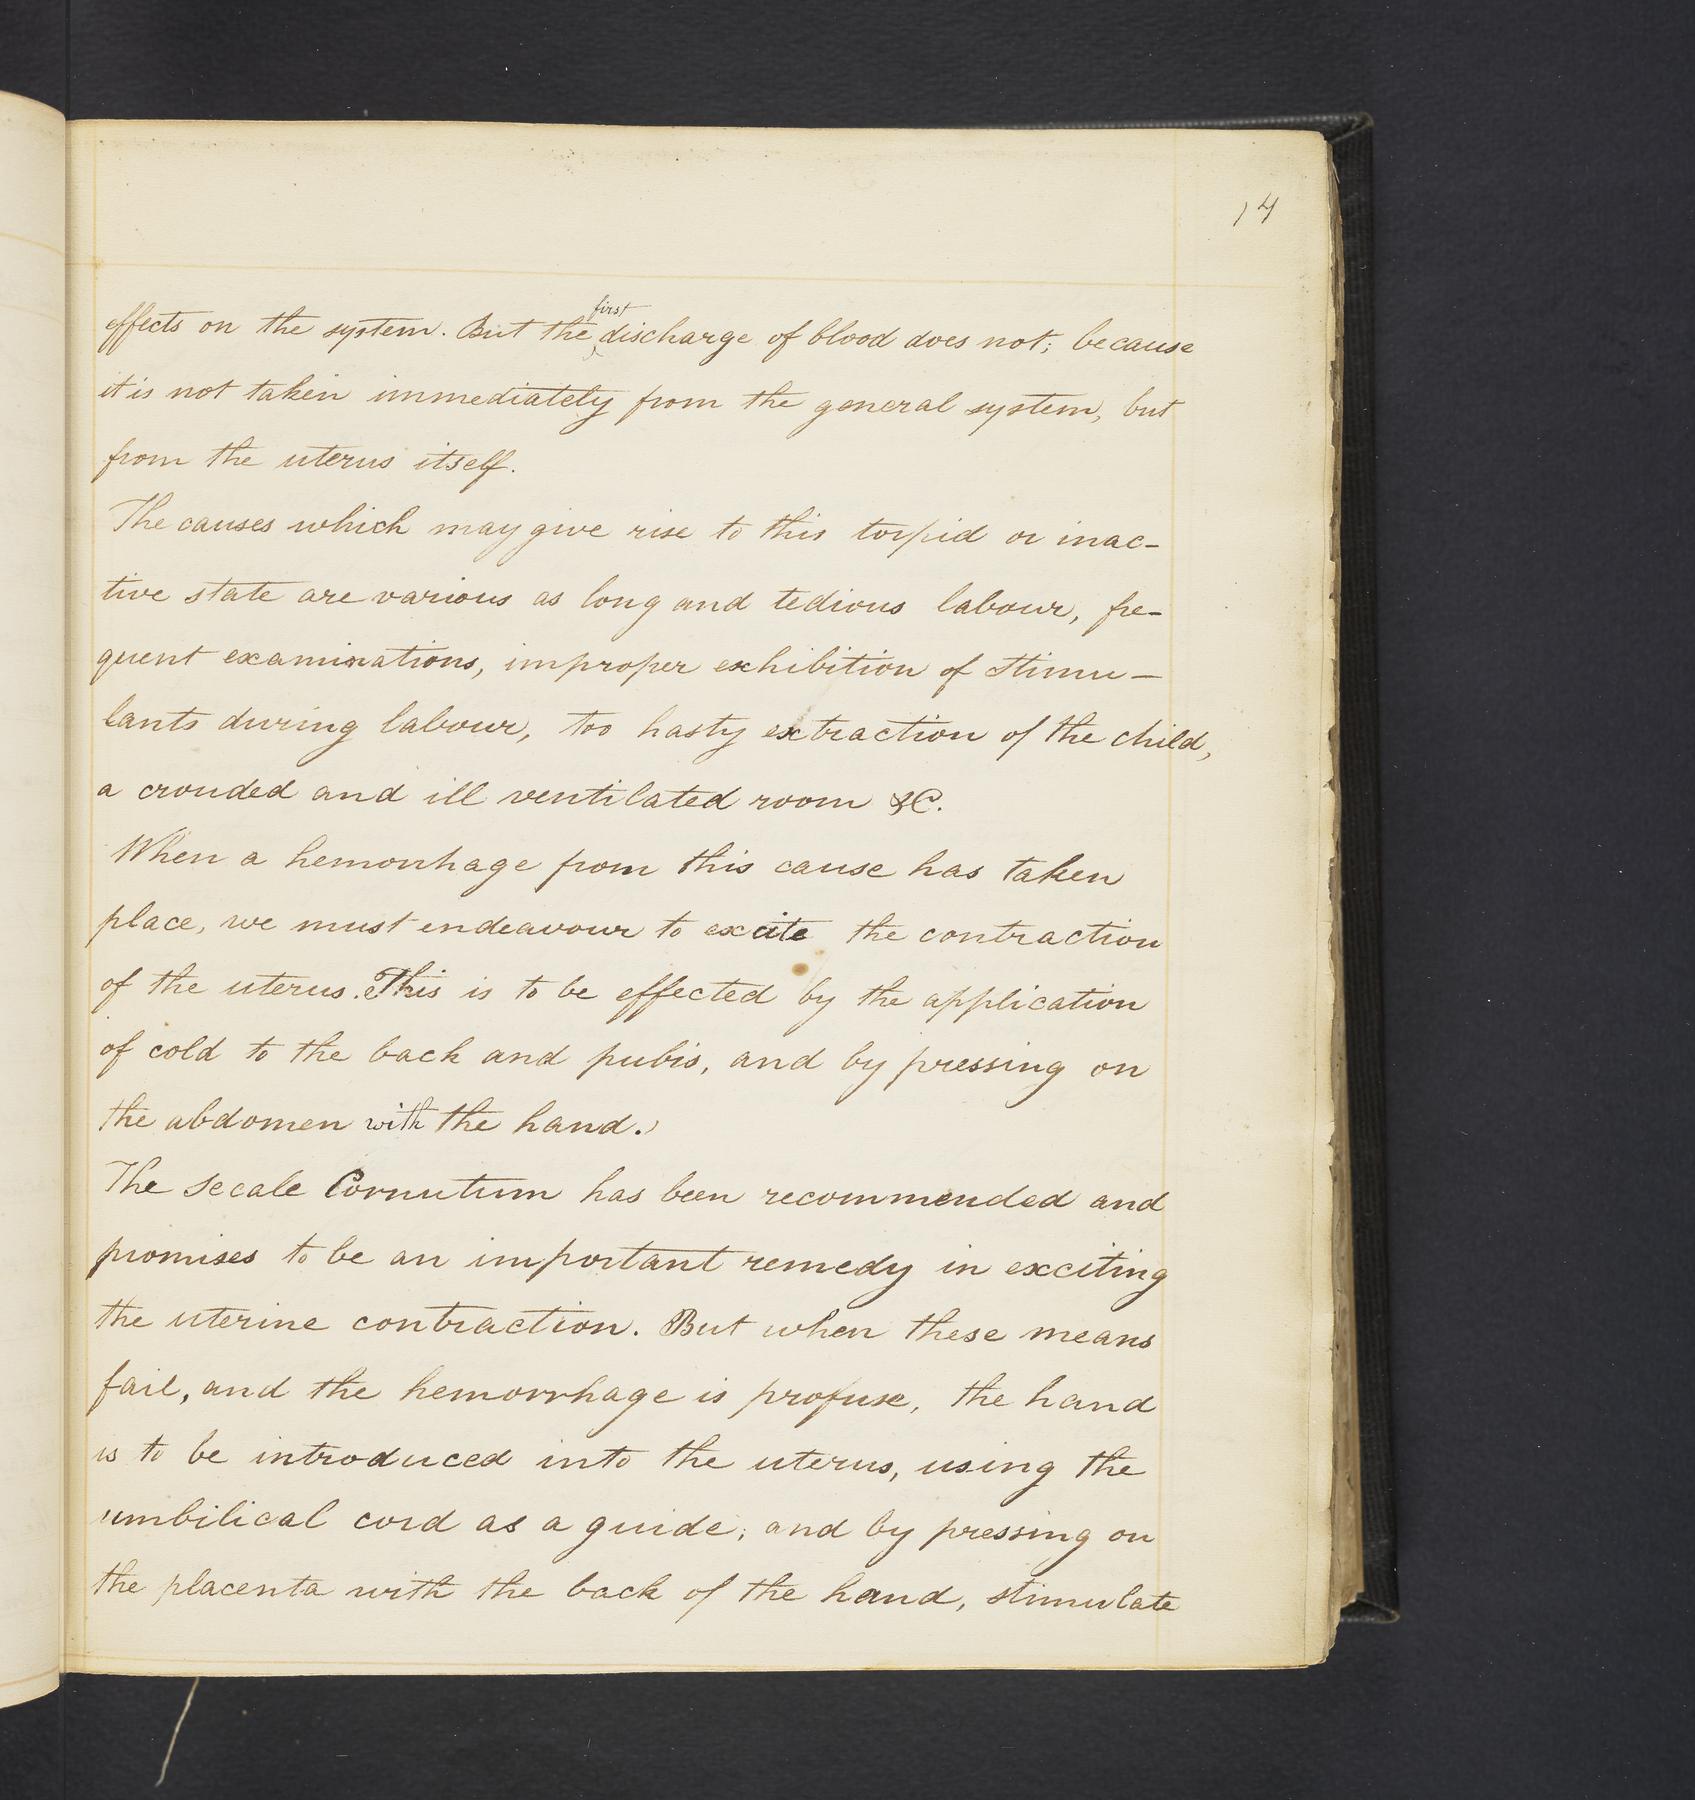 14
effects on the system. But the first discharge of blood does not; because
it is not taken immediately from the general system, but
from the uterus itself.
The causes which may give rise to this torpid or inac-
tive state are various as long and tedious labour, fre-
quent examinations, improper exhibition of stimu-
lants during labour, too hasty extraction of the child,
a crouded and ill ventilated room &C.
When a hemorrhage from this cause has taken
place, we must endeavour to excite the contraction
of the uterus. This is to be effected by the application
of cold to the back and pubis, and by pressing on
the abdomen with the hand.
The Secale Cornutum has been recommended and
promises to be an important remedy in exciting
the uterine contraction. But when these means
fail, and the hemorrhage is profuse, the hand
is to be introduced into the uterus, using the
umbilical cord as a guide; and by pressing on
the placenta with the back of the hand, stimulate